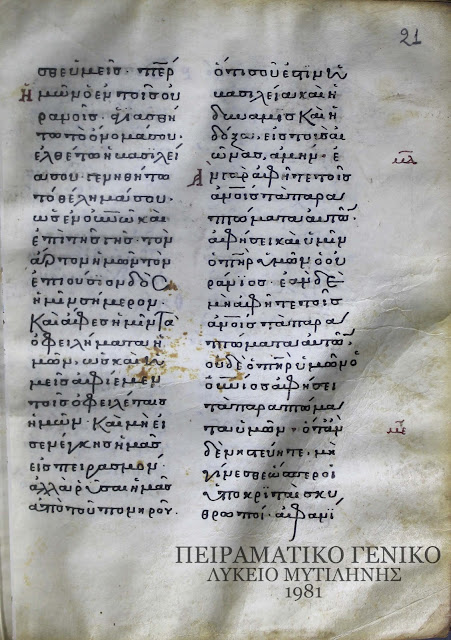 21
σθε ὑμεῖς· περ
ἡμῶν ὁ ἐν τοῖς οὐ
ρανοῖς· ἁγιασθή
τω τὸ ὄνομά σου.
ἐλθέτω ἡ βασιλεί
α σου. γενηθήτω
τὸ θέλημά σου.
ὡς ἐν οὐνῶ καὶ
ἐπὶ τῆς γῆς· τὸν
ἄρτον ἡμῶν τὸν
ἐπιούσιον δὸς
ἡμῖν σήμερον·
Καὶ ἄφες ἡμῖν τὰ
ὀφειλήματα ἡ
μῶν, ὡς καὶ ἡ
μεῖς ἀφίεμεν
τοῖς ὀφειλέταις
ἡμῶν· Καὶ μὴ εἰ
σενέγκης ἡμᾶς
εἰς πειρασμόν·
ἀλλὰ ρῦσαι ἡμᾶς
ἀπὸ τοῦ πονηροῦ.
ὅτι σοῦ ἐστὶν ἡ
βασιλεία καὶ ἡ
δύναμις Καὶ ἡ
δόξα, εἰς τοὺς αἰ
ῶνας, ἀμήν· ἐ
Ὰν γὰρ ἀφῆτε τοῖς
ἀνοις τὰ παρα
πτώματα αὐτῶν
ἀφήσει καὶ ὑμῖν
ὁ πηρ ὑμῶν ὁ οὐ
ράνιος· ἐὰν δὲ
μὴ ἀφῆτε τοῖς
ἀνοις τὰ παρα
πτώματα αὐτῶν
οὐδὲ ὁ πηρ ὑμῶν ὁ
οὐνιος ἀφήσει
τὰ παραπτώμα
τα ὑμῶν· ὅταν
δὲ νηστεύητε, μὴ
γίνεσθε ὥσπερ οἱ
ὑποκριταὶ σκυ
θρωποί· ἀφανί
μδ
με
ΠΕΙΡΑΜΑΤΙΚΟ ΓΕΝΙΚΟ
ΛΥΚΕΙΟ ΜΥΤΙΛΗΝΗΣ
1981